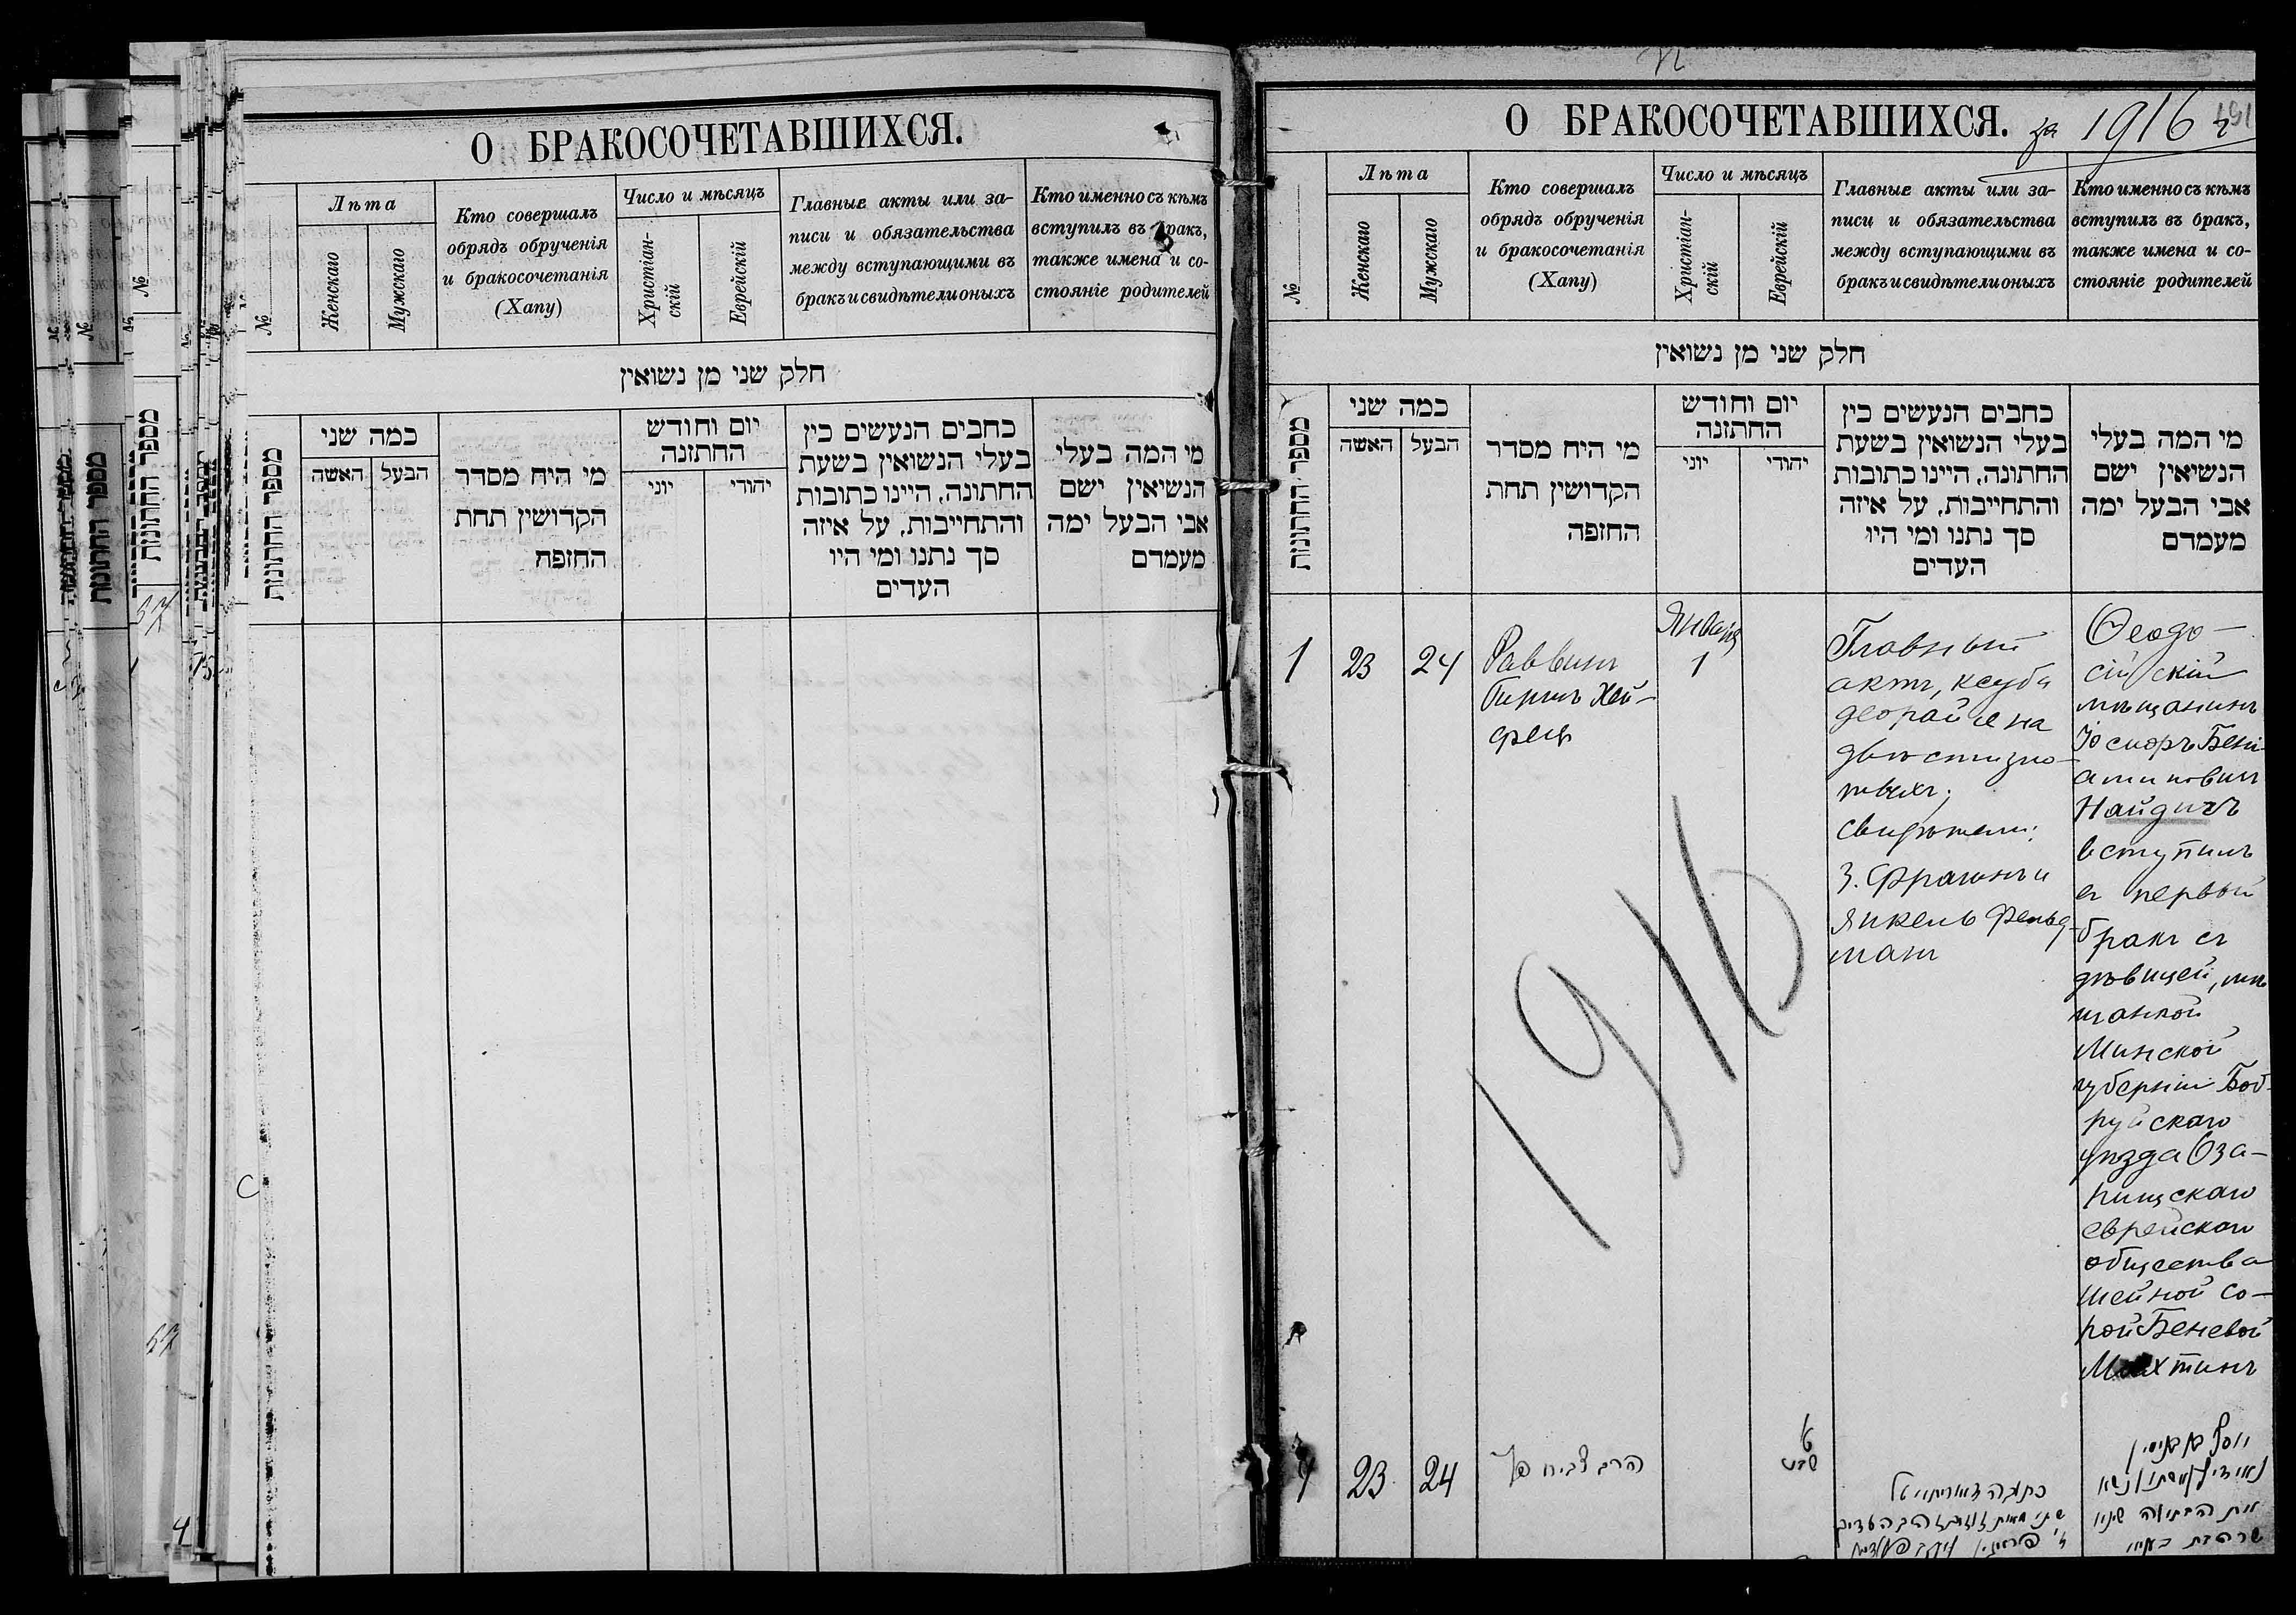 О БРАКОСОЧЕТАВШИХСЯ.
№
Лѣта
Женскаго
Мужскаго
Кто совершалъ
обрядъ обрученія
и бракосочетанія
(Хапу)
Число и мѣсяцъ
Христіан-
скій
Еврейскій
Главные акты или за-
писи и обязательства
между вступающими въ
бракъ и свидѣтели оныхъ
Кто именно съ кѣмъ
вступилъ въ бракъ,
также имена и со-
стояніе родителей
חלק שני מן נשואין
מספר החתונות
כמה שני
האשה
הבעל
מי היח מסדר
הקדושין תחת
החופה
יום וחודש
החתונה
יוני
יהודי
כתבים הנעשים בין
בעלי הנשואין בשעת
החתונה, היינו כתובות
והתחייבות, על איזה
סך נתנו ומי היו
העדים
מי המה בעלי
הנשיאין ישם
אבי הבעל ימה
מעמדם
О БРАКОСОЧЕТАВШИХСЯ. за 1916 г
№
Лѣта
Женскаго
Мужскаго
Кто совершалъ
обрядъ обрученія
и бракосочетанія
(Хапу)
Число и мѣсяцъ
Христіан-
скій
Еврейскій
Главные акты или за-
писи и обязательства
между вступающими въ
бракъ и свидѣтели оныхъ
Кто именно съ кѣмъ
вступилъ въ бракъ,
также имена и со-
стояніе родителей
חלק שני מן נשואין
מספר החתונות
כמה שני
האשה
הבעל
מי היח מסדר
הקדושין תחת
החופה
יום וחודש
החתונה
יוני
יהודי
כתבים הנעשים בין
בעלי הנשואין בשעת
החתונה, היינו כתובות
והתחייבות, על איזה
סך נתנו ומי היו
העדים
מי המה בעלי
הנשיאין ישם
אבי הבעל ימה
מעמדם
1
23
24
Раввинъ
Хей-
фецъ
Января
1
Главный
актъ, ксуба
деорайсе на
двѣсти зло-
тыхъ;
свидѣтели:
З. Фрагинъ и
Янкель Фельд-
манъ
Ѳеодо-
сійскій
мѣщанинъ
Іосифъ Бені-
аминовичъ
Найдичъ
вступилъ
въ первый
бракъ съ
дѣвицей, мѣ
щанкой
Минской
губерніи Боб-
руйскаго
уѣзда Оза-
рицскаго
еврейскаго
общества
Шейной Со-
рой Беневой
1916
1
23
24
הרב
ט
שבט
כתובה דאורייתא
יוסף בן בנימין
את הבתולה שיינע